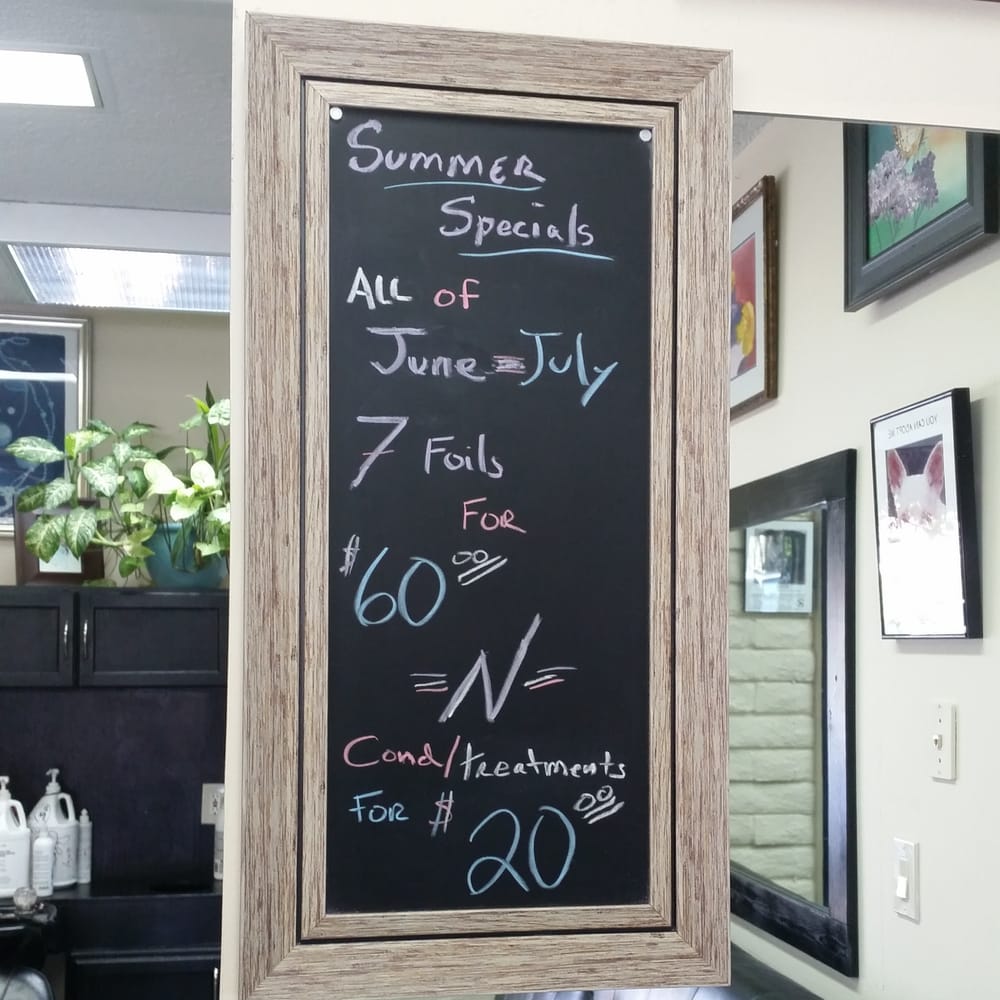 Summer
Specials
ALL of
June = July
7 Foils
FOR
$60.00
= N =
Cond/treatments
FOR $
20.00
YOU CAN ADOPT ME